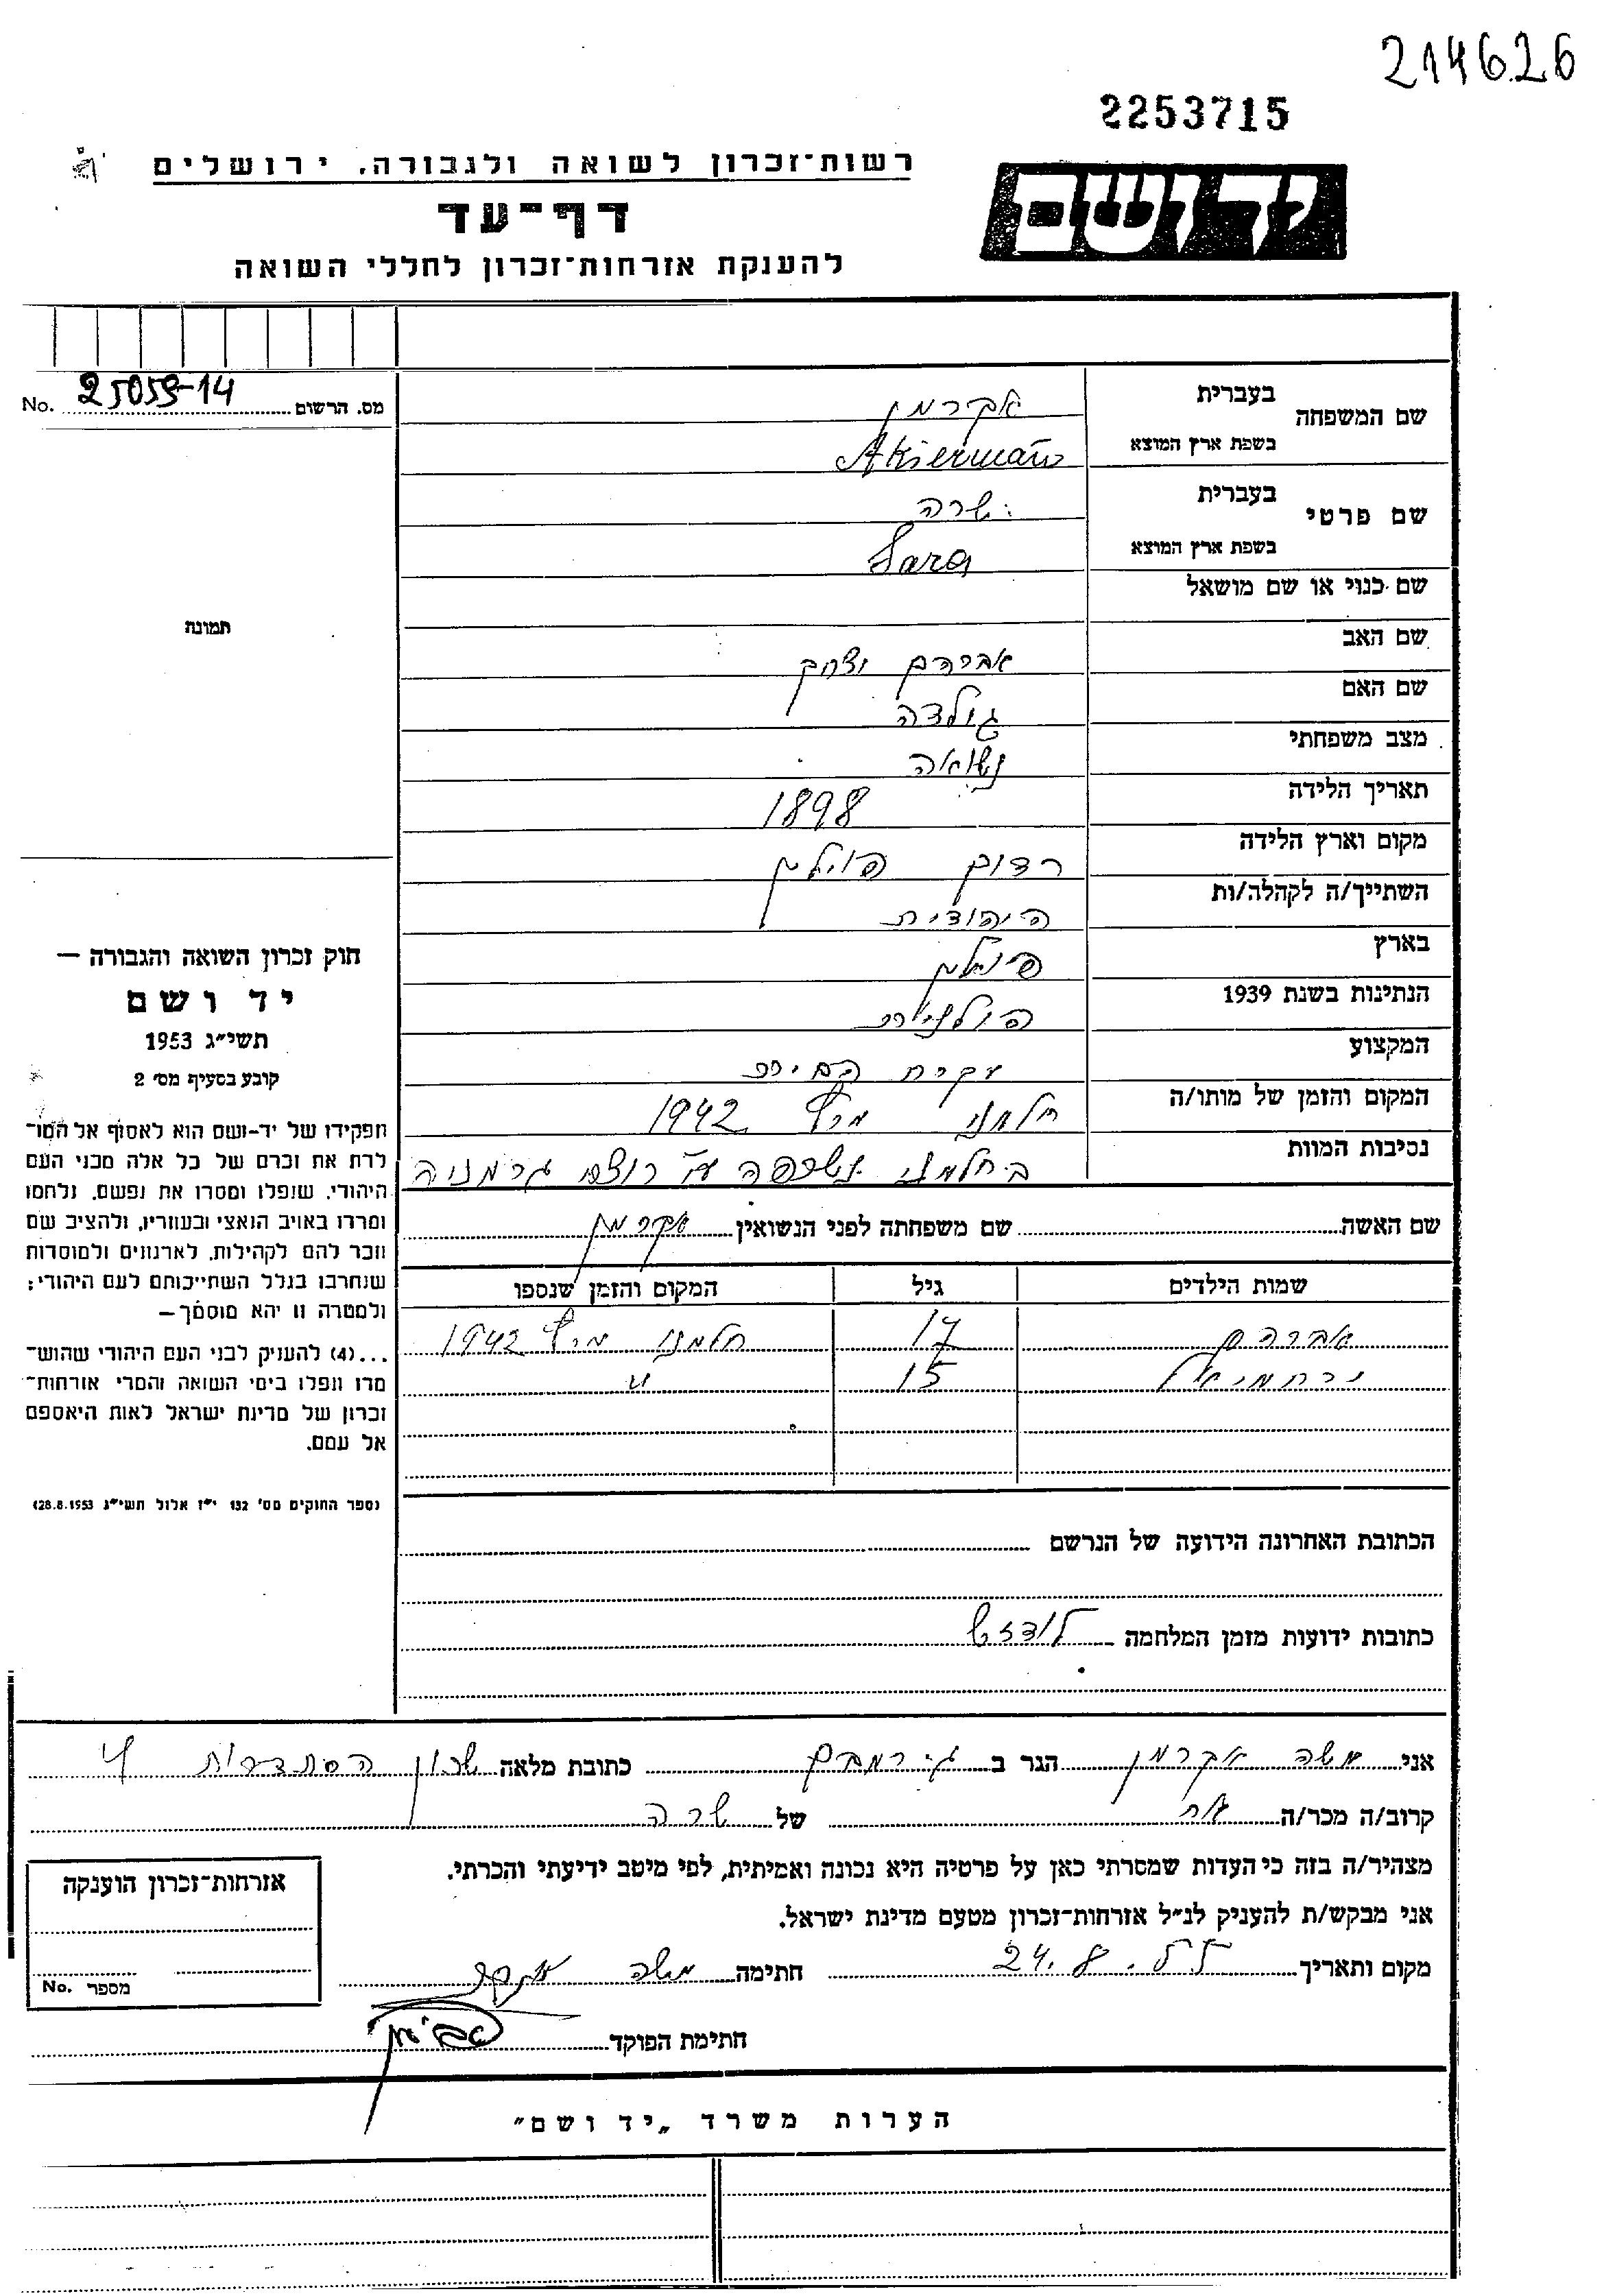 214626
2253715
ידושם
רשות־זכרון לשואה ולגבורה, ירושלים
דף־עד
להענקת אזרחות־זכרון לחללי השואה
מס. הרשום 25059-14 No.
תמונה
שם המשפחה
בעברית אקרמן
בשפת ארץ המוצא Akierman
שם פרטי
בעברית שרה
בשפת ארץ המוצא Sara
שם כנוי או שם מושאל
שם האב אברהם יצחק
שם האם גולדה
מצב משפחתי נשואה
תאריך הלידה 1898
מקום וארץ הלידה רדום פוילן
השתייך/ה לקהלה/ות היהודית
בארץ פולין
הנתינות בשנת 1939 פולנית
המקצוע עקרת הבית
המקום והזמן של מותו/ה חלמנו מרץ 1942
נסיבות המוות בחלמנו נשרפה ע"י רוצחי גרמניה
שם האשה שם משפחתה לפני הנשואין אקרמן
שמות הילדים גיל המקום והזמן שנספו
אברהם 17 חלמנו מרץ 1942
ירחמיאל 15 "
חוק זכרון השואה והגבורה —
יד ושם
תשי״ג 1953
קובע בסעיף מס׳ 2
תפקידו של יד-ושם הוא לאסוף אל המו־
לדת את זכרם של כל אלה מבני העם
היהודי, שנפלו ומסרו את נפשם, נלחמו
ומרדו באויב הנאצי ובעוזריו, ולהציב שם
וזכר להם לקהילות, לארגונים ולמוסדות
שנחרבו בגלל השתייכותם לעם היהודי;
ולמטרה זו יהא מוסמך—
...(4) להעניק לבני העם היהודי שהוש־
מדו ונפלו בימי השואה והמרי אזרחות־
זכרון של מדינת ישראל לאות היאספם
אל עמם.
(ספר החוקים מס׳ 132 י״ז אלול תשי״ג 28.8.1953)
הכתובת האחרונה הידועה של הנרשם
כתובות ידועות מזמן המלחמה לודזש
אני משה אקרמן הגר ב ג. רמבם כתובת מלאה שכון הסתדרות 4
קרוב/ה מכר/ה אח של שרה
מצהיר/ה בזה כי העדות שמסרתי כאן על פרטיה היא נכונה ואמיתית, לפי מיטב ידיעתי והכרתי.
אני מבקש/ת להעניק לנ״ל אזרחות־זכרון מטעם מדינת ישראל.
מקום ותאריך 24.8.55 חתימה משה
חתימת הפוקד
אזרחות־זכרון הוענקה
מספר No.
הערות משרד „יד ושם״